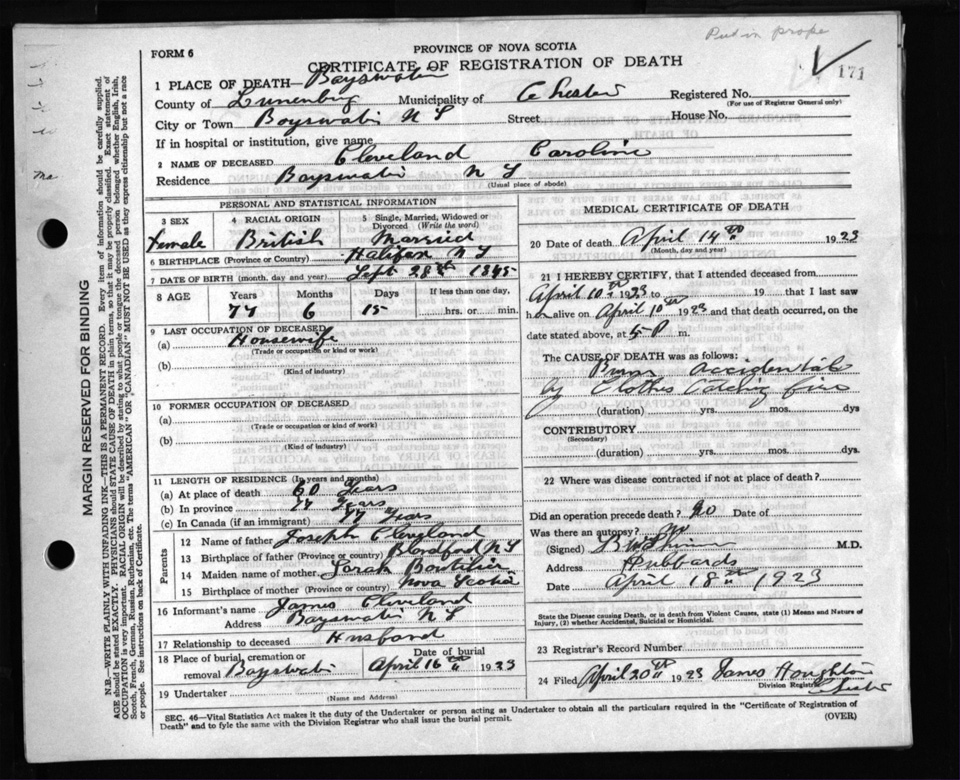 Put in prope
FORM 6
PROVINCE OF NOVA SCOTIA
CERTIFICATE OF REGISTRATION OF DEATH
171
1 PLACE OF DEATH— Bayswater
County of Lunenburg Municipality of Chester Registered No.
(For use of Registrar General only)
City or Town Bayswater N S Street House No.
If in hospital or institution, give name
2 NAME OF DECEASED Cleveland Caroline
Residence Bayswater N S
(Usual place of abode)
PERSONAL AND STATISTICAL INFORMATION
3 SEX 4 RACIAL ORIGIN 5 Single, Married, Widowed or Divorced (Write the word)
Female British Married
6 BIRTHPLACE (Province or Country) Halifax N S
7 DATE OF BIRTH (month, day and year) Sept 28th 1845
8 AGE Years Months Days If less than one day,
77 6 15 hrs. or min.
9 LAST OCCUPATION OF DECEASED
(a) Housewife
(Trade or occupation or kind or work)
(b)
(Kind of industry)
10 FORMER OCCUPATION OF DECEASED
(a)
(Trade or occupation or kind of work)
(b)
(Kind of industry)
11 LENGTH OF RESIDENCE (In years and months)
(a) At place of death 60 Years
(b) In province 77 Years
(c) In Canada (if an immigrant) 77 Years
PARENTS
12 Name of father Joseph Cleveland
13 Birthplace of father (Province or country) Blandford N S
14 Maiden name of mother Sarah Boutilier
15 Birthplace of mother (Province or country) Nova Scotia
16 Informant's name James Cleveland
Address Bayswater N S
17 Relationship to deceased Husband
18 Place of burial, cremation or removal Bayswater Date of burial April 16th 1923
19 Undertaker
(Name and Address)
MEDICAL CERTIFICATE OF DEATH
20 Date of death April 14th 1923
(Month, day and year)
21 I HEREBY CERTIFY, that I attended deceased from
April 10th 1923 to 19 that I last saw
h alive on April 10th 1923 and that death occurred, on the
date stated above, at 5 P m.
The CAUSE OF DEATH was as follows:
Burns accidental
by Clothes Catching fire
(duration) yrs. mos. dys
CONTRIBUTORY
(Secondary)
(duration) yrs. mos. dys.
22 Where was disease contracted if not at place of death?
Did an operation precede death? no Date of
Was there an autopsy? No
(Signed) M.D.
Address Hubbards
Date April 18th 1923
State the Disease causing Death, or in death from Violent Causes, state (1) Means and Nature of
Injury, (2) whether Accidental, Suicidal or Homicidal.
23 Registrar's Record Number
24 Filed April 20th 1923 James Houghton
Division Registrar
Chester
SEC. 46—Vital Statistics Act makes it the duty of the Undertaker or person acting as Undertaker to obtain all the particulars required in the "Certificate of Registration of
Death" and to fyle the same with the Division Registrar who shall issue the burial permit.
(OVER)
MARGIN RESERVED FOR BINDING
N.B.—WRITE PLAINLY WITH UNFADING INK—THIS IS A PERMANENT RECORD. Every item of information should be carefully supplied.
AGE should be stated EXACTLY. PHYSICIANS should STATE CAUSE OF DEATH in plain terms, so that it may be properly classified. Exact statement of
OCCUPATION is very important. RACIAL ORIGIN will be described by stating to what people or tongue the deceased person belonged whether English, Irish,
Scotch, French, German, Russian, Ruthenian, etc. The terms "AMERICAN" OR "CANADIAN" MUST NOT BE USED as they express citizenship but not a race
or people. See instructions on back of Certificate.